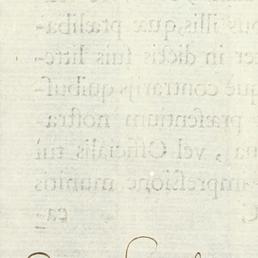 illis, quæ præliba-
in dictis suis litte-
què contrarijs quibuſ-
præſentium noſtra-
, vel Officialis tui
impreſſione munitos
ca-